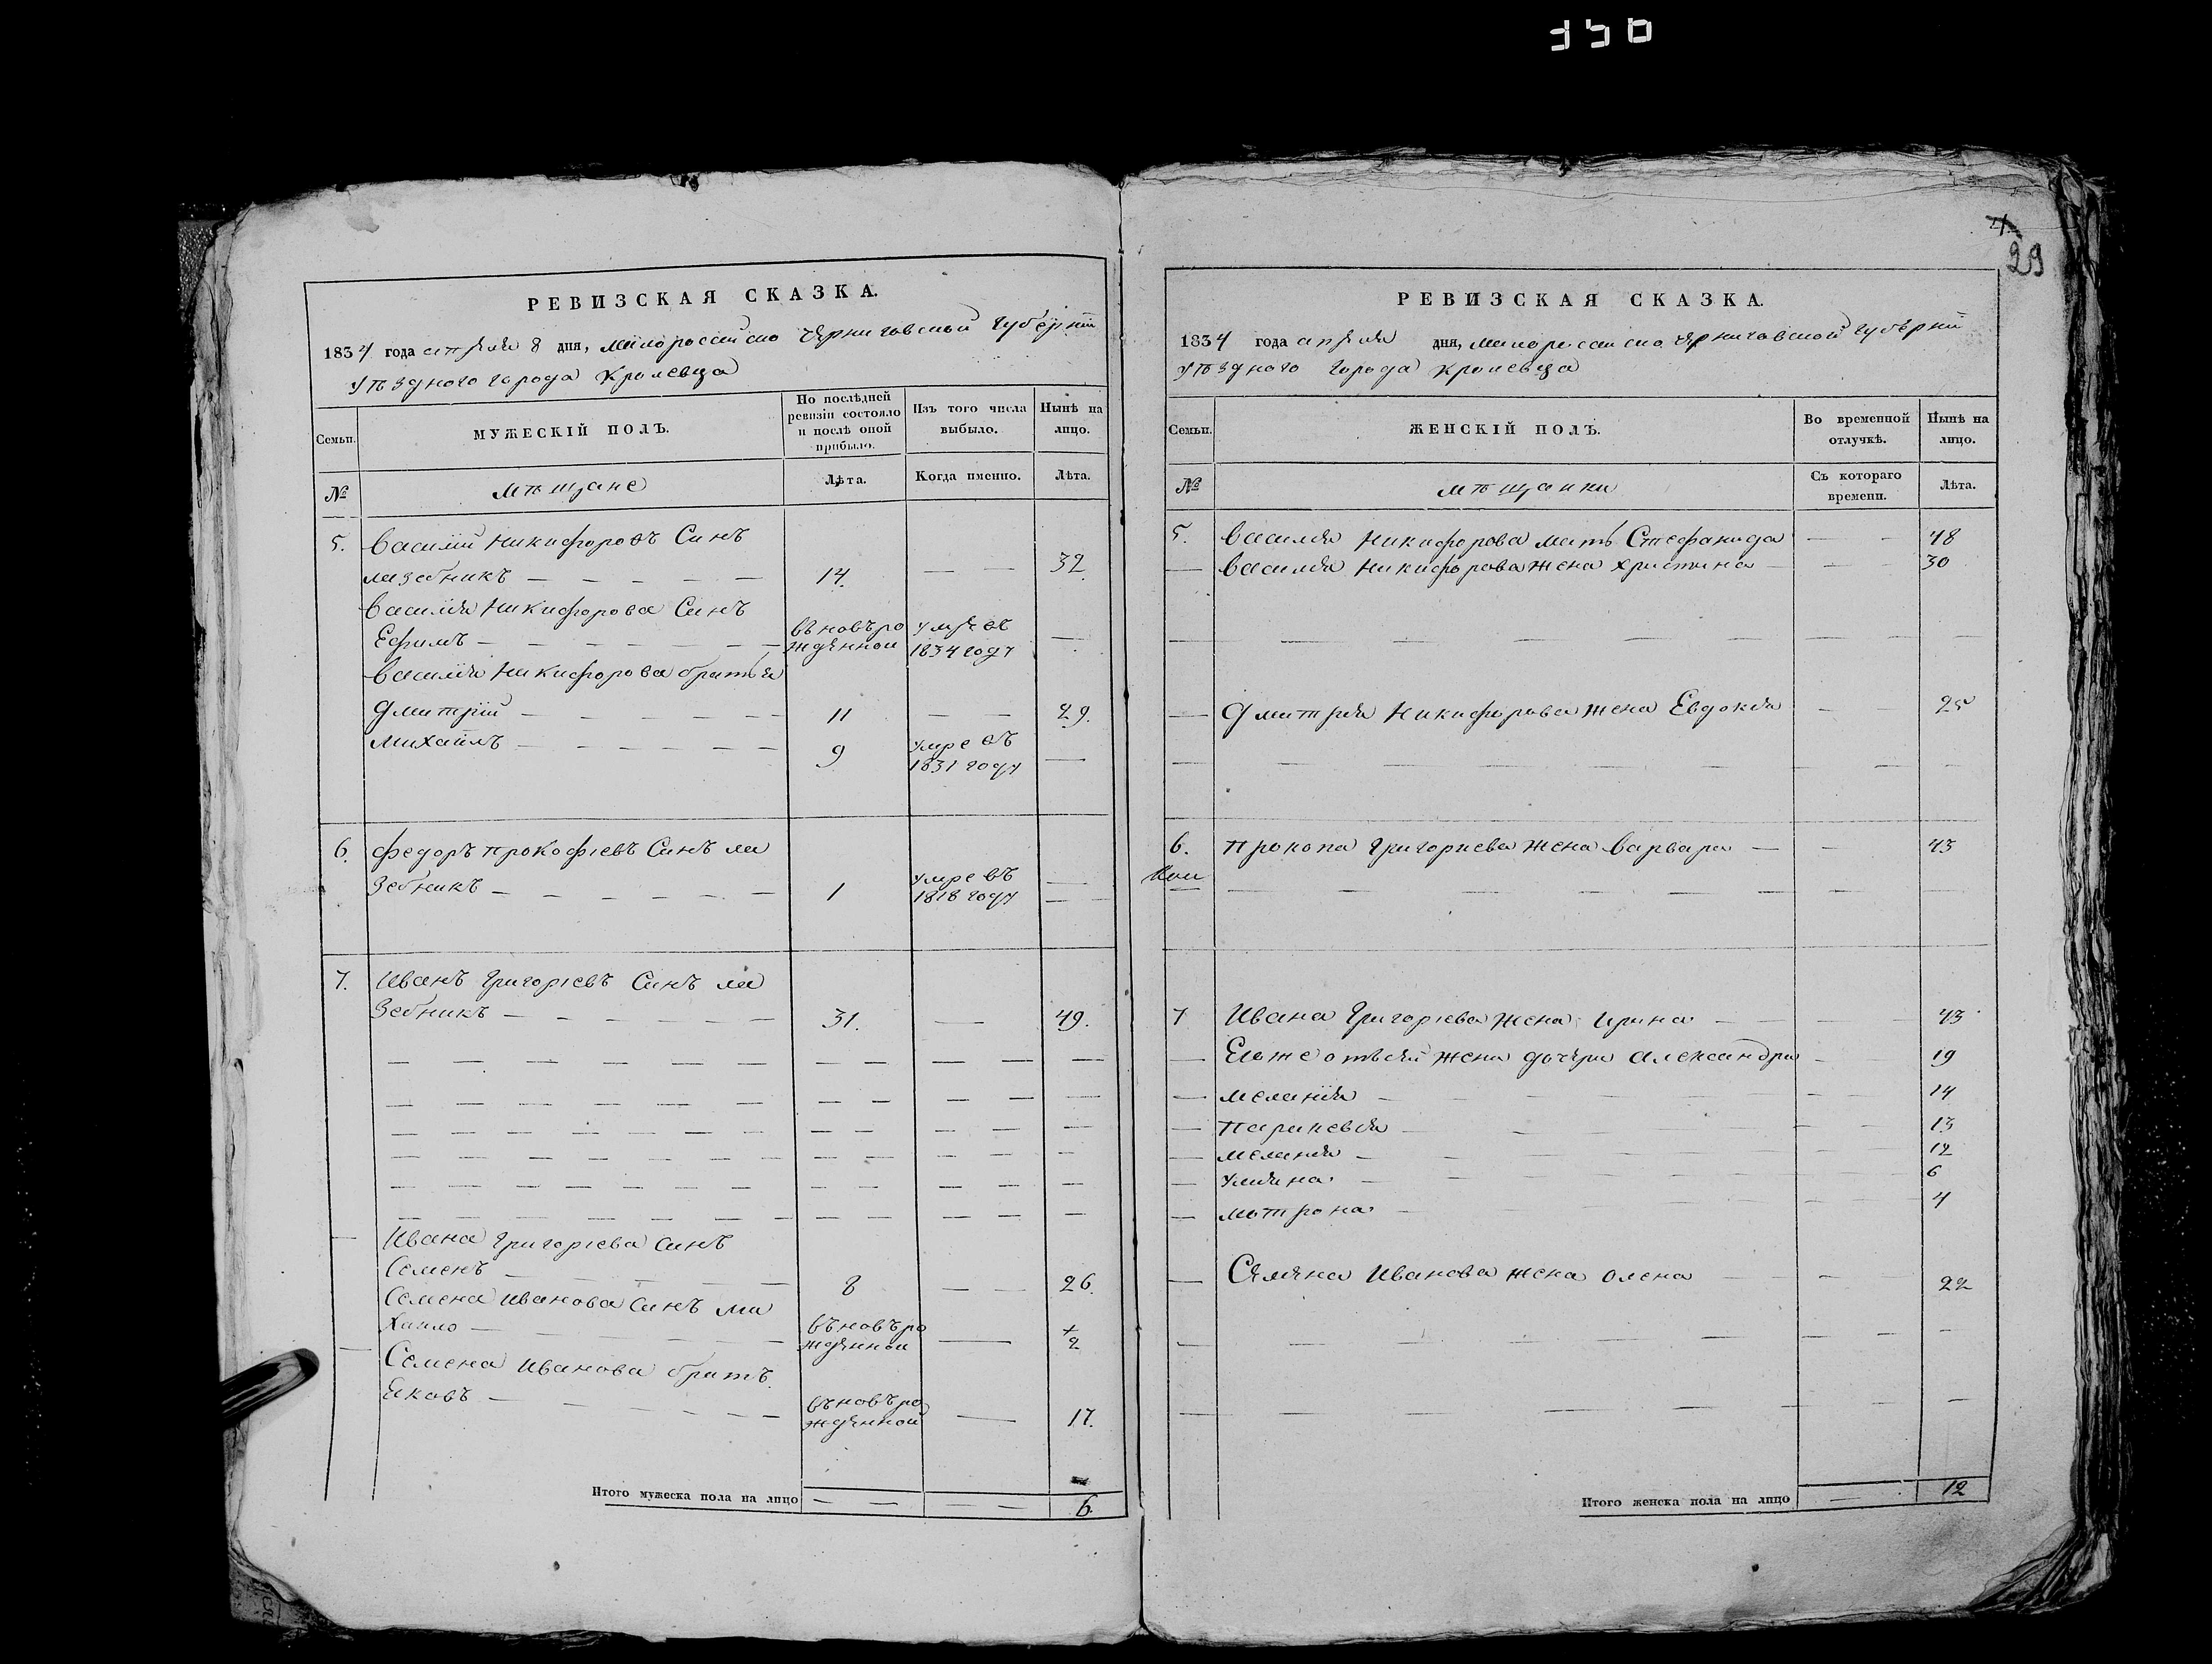 356
РЕВИЗСКАЯ СКАЗКА.
1834 года апреля 8 дня, малоросейско Черниговской Губерніи
уѣздного города Кролевца
Семьи.
МУЖЕСКІЙ ПОЛЪ.
По послѣдней ревизіи состояло и послѣ оной прибыло.
Изъ того числа выбыло.
Нынѣ на лицо.
№
мѣщане
Лѣта.
Когда именно.
Лѣта.
5. Василій Никифоровъ Синъ
лазебникъ — — — — — 14. — — 32
Василия Никифорова Синъ
Ефимъ — — — — — въновъро умре въ —
жденной 1834 году
Василия Никифорова братья
Дмитрій — — — — — 11 — — 29.
Михаилъ — — — — — 9 умре въ —
1831 году
6. Федоръ Прокофіевъ Синъ ла
зебникъ — — — — — 1 умре въ —
1818 году —
7. Иванъ Григоріевъ Синъ ла
зебникъ — — — — — 31. — 49.
Ивана Григоріева Синъ
Семенъ — — — — 8 — — 26.
Семена Иванова Синъ ми
хаило — — — — въновъро — 2
жденной
Семена Иванова братъ
Яковъ — — — — — въновъро — 17.
жденной
Итого мужеска пола на лицо — — — — 6.
4
29
РЕВИЗСКАЯ СКАЗКА.
1834 года апреля дня, малоросейско Черниговской Губерніи
уѣздного города Кролевца
Семьи.
ЖЕНСКІЙ ПОЛЪ.
Во временной отлучкѣ.
Нынѣ на лицо.
№
мѣщанки
Съ котораго времени.
Лѣта.
5. Василия Никифорова мать Стефанида — — 48
— Василия Никифорова жена Христина — — 30
— Дмитрия Никифорова жена Евдокия — — 25
6. Прокопа Григориева жена Варвара — — 43
7 Ивана Григоріева жена Ирина — — 43
— Егоже отъсей жени дочери Александра — 19
— Меланія — — 14
— Параскевия — — 13
— Мелания — — 12
— Улияна — — 6
— Мотрона — — 4
— Семена Иванова жена Олена — — 22
Итого женска пола на лицо — 12